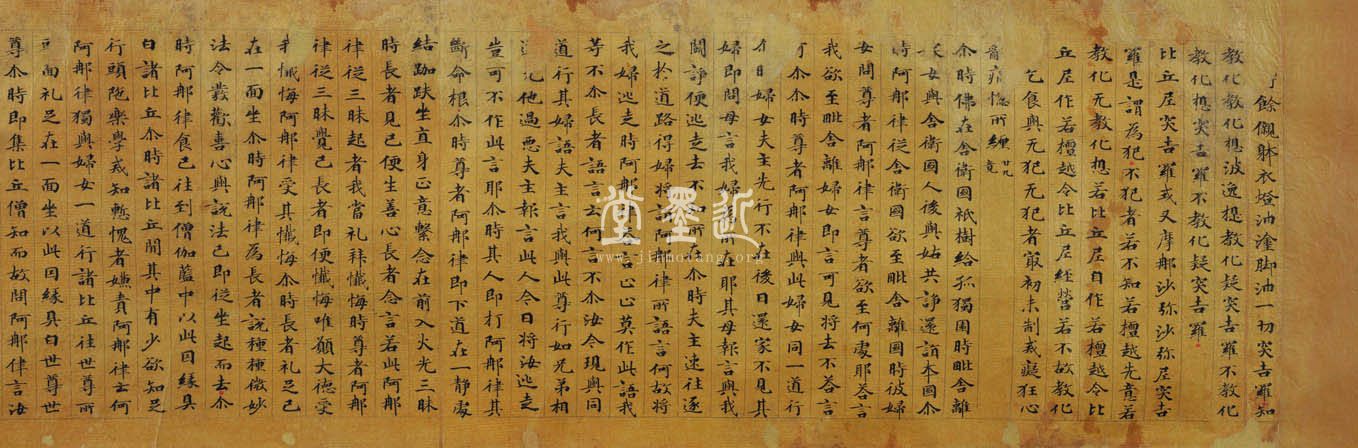 餘儭躰衣燈油塗脚油一切突吉羅知
教化教化想波逸提教化疑突吉羅不教化
教化想突吉羅不教化疑突吉羅
比丘尼突吉羅或叉摩那沙弥沙弥尼突吉
羅是謂為犯不犯者若不知若檀越先意若
教化无教化想若比丘尼自作若檀越令比
丘尼作若檀越令比丘尼經營若不故教化
乞食與无犯无犯者㝡初未制戒癡狂心
惱所纏 廿九竟
尒時佛在舍衛國祇樹給孤獨園時毗舍離
女與舍衛國人後與姑共諍還詣本國尒
時阿那律從舍衛國欲至毗舍離國時彼婦
女問尊者阿那律言尊者欲至何處耶荅言
我欲至毗舍離婦女即言可見將去不荅言
可尒時尊者阿那律與此婦女同一道行
尒時婦女夫主先行不在後日還家不見其
婦即問母言我婦所在耶其母報言與我
鬪諍便逃走去不知所在尒時夫主速往逐
之於道路得婦將詣阿那律所語言何故將
我婦逃走時阿那律荅言止止莫作此語我
等不尒長者語言云何言不尒汝今現與同
道行其婦語夫主言我與此尊行如兄弟相
逐无他過惡夫主報言此人今日將汝逃走
豈可不作此言耶尒時其人即打阿那律其
斷命根尒時尊者阿那律即下道在一静處
結跏趺坐直身正意繫念在前入火光三昧
時長者見已便生善心長者念言若此阿那
律從三昧起者我當礼拜懺悔時尊者阿那
律從三昧覺已長者即便懺悔唯願大德受
我懺悔阿那律受其懺悔尒時長者礼足已
在一面坐尒時阿那律為長者說種種微妙
法令發歡喜心與說法已即從坐起而去尒
時阿那律食已往到僧伽藍中以此因緣具
白諸比丘尒時諸比丘聞其中有少欲知足
行頭陁樂學戒知慙愧者嫌責阿那律云何
阿那律獨與婦女一道行諸比丘往世尊所
頭面礼足在一面坐以此因緣具白世尊世
尊尒時即集比丘僧知而故問阿那律言汝
逝墨堂
www.jinmotang.com